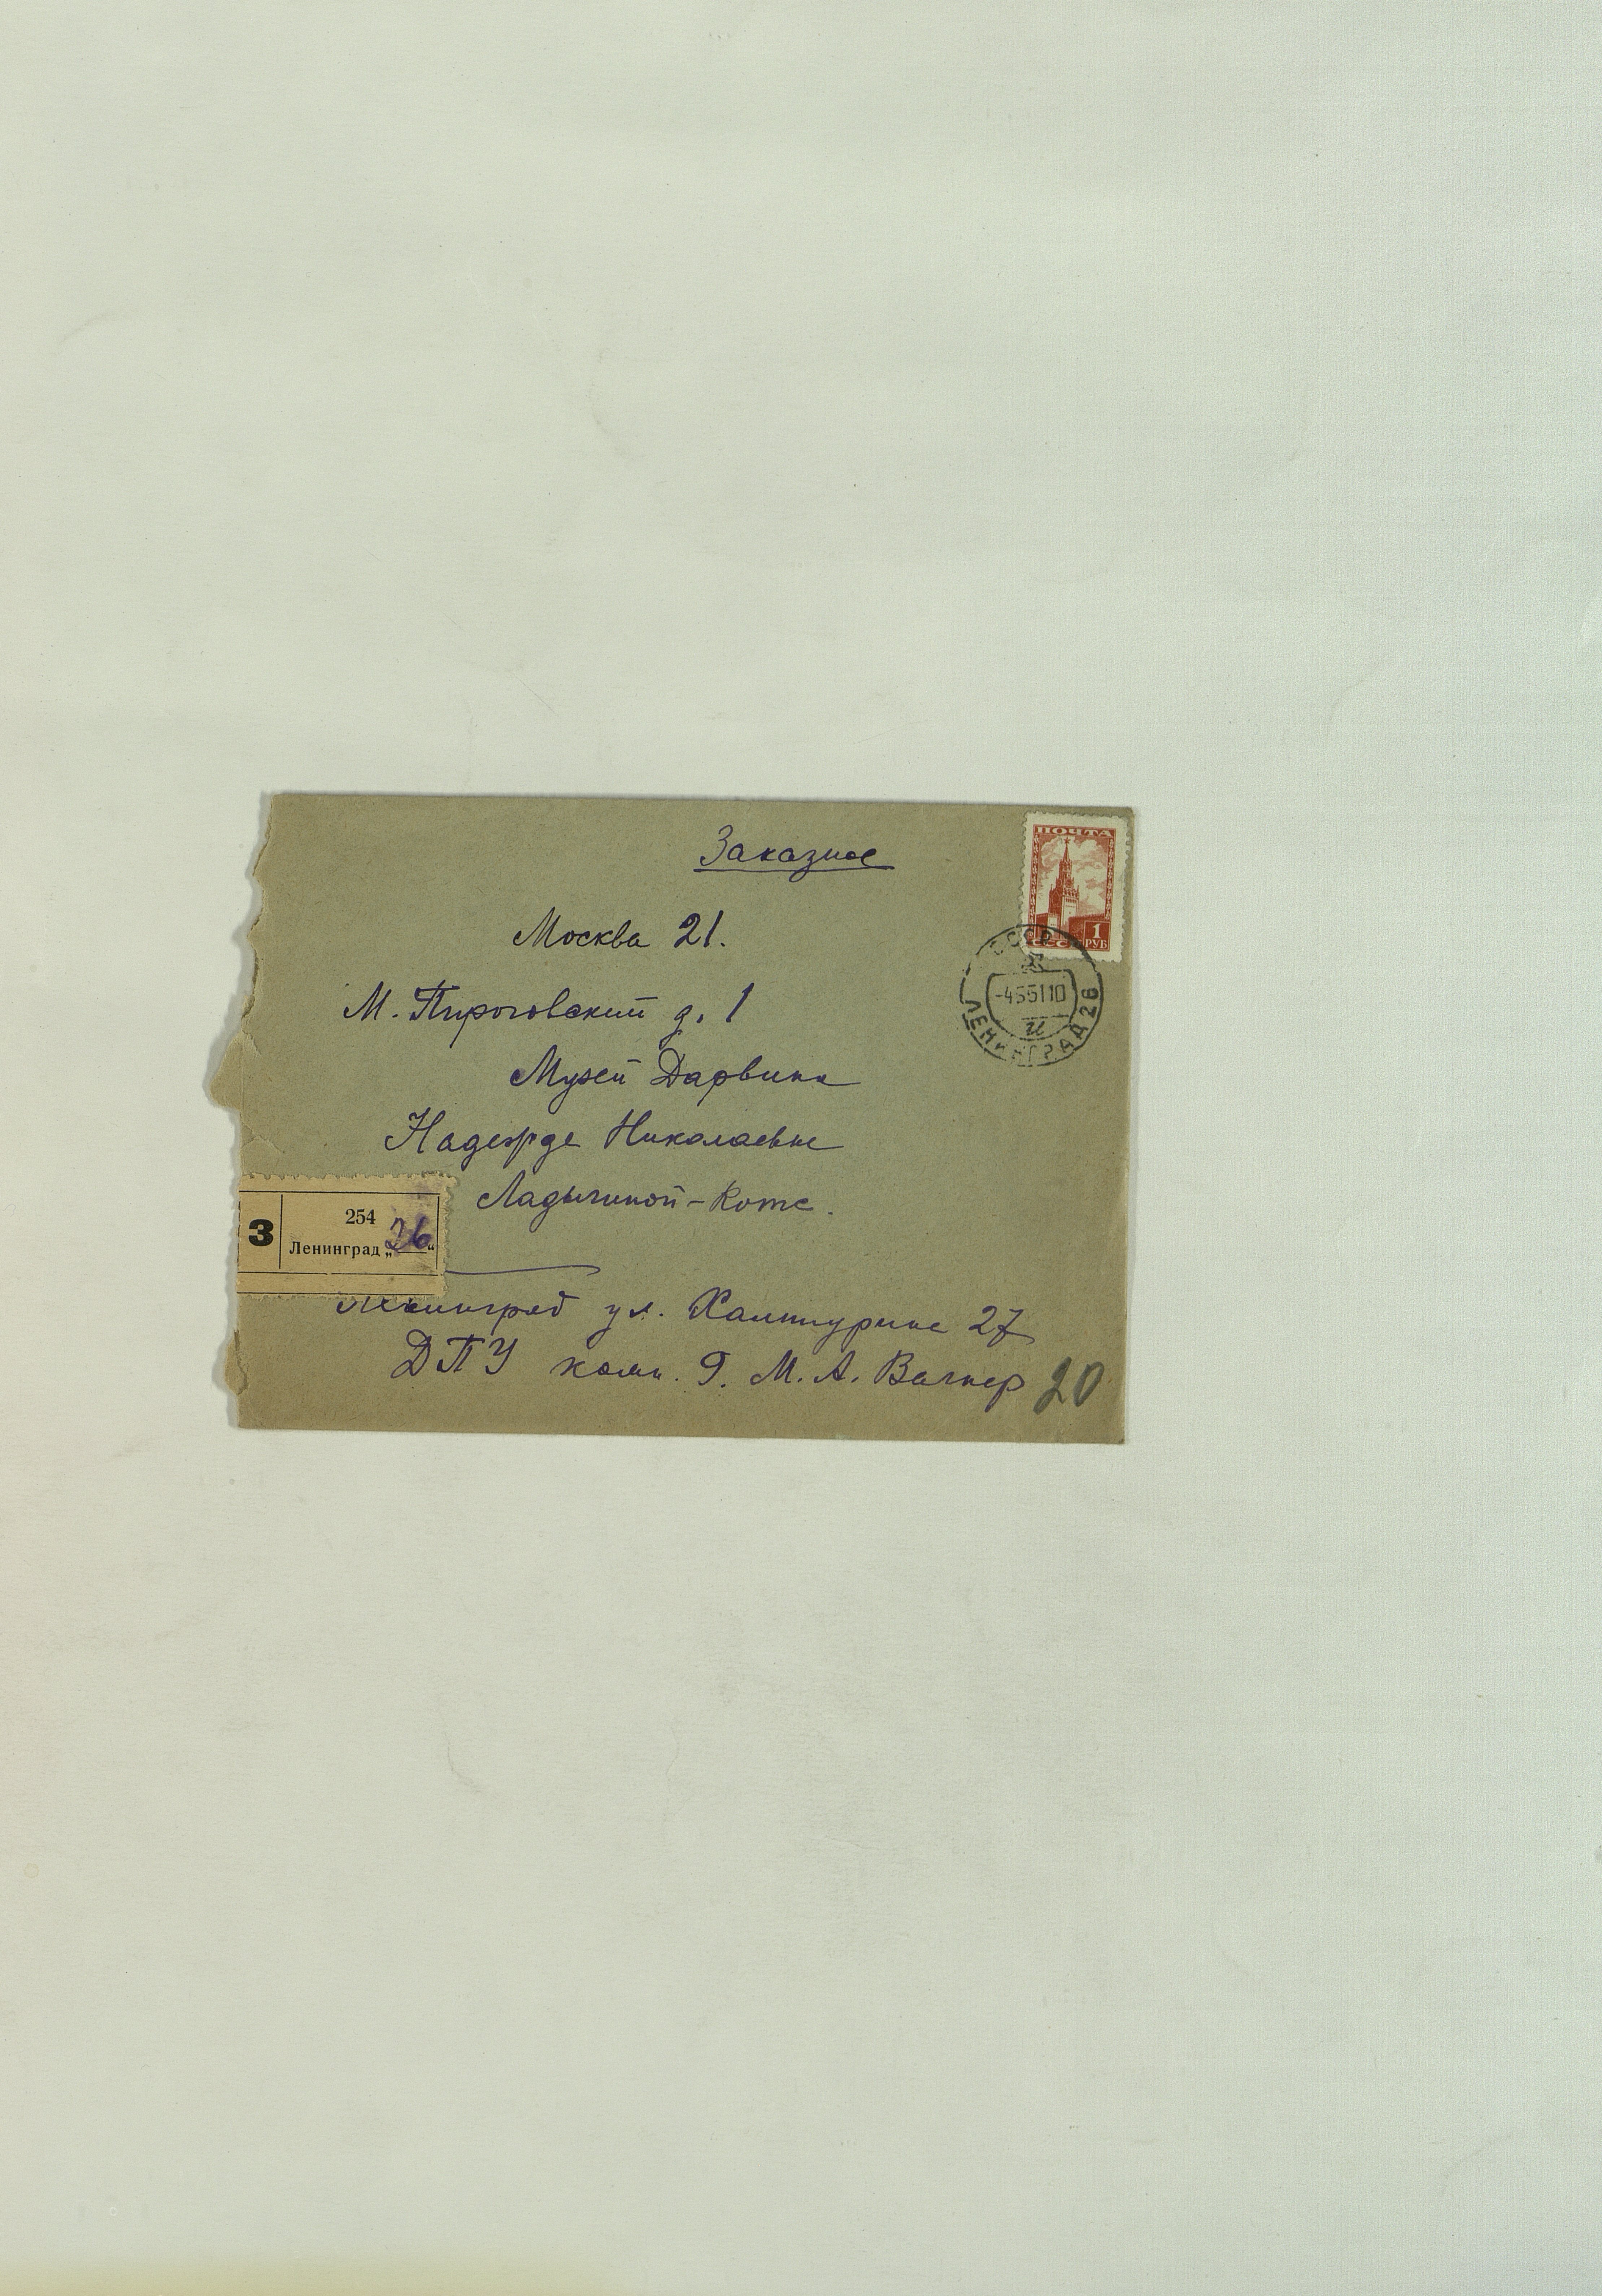 Заказное
ПОЧТА
1
РУБ
СССР
Москва 21.
М. Пироговский д. 1
СССР
-4551 10
и
ЛЕНИНГРАД 26
Музей Дарвина
Надежде Николаевне
Ладыгиной-Котс.
З
254
Ленинград „26“
Ленинград ул. Халтурина 27
ДПУ комн. 9. М. А. Вагнер
20